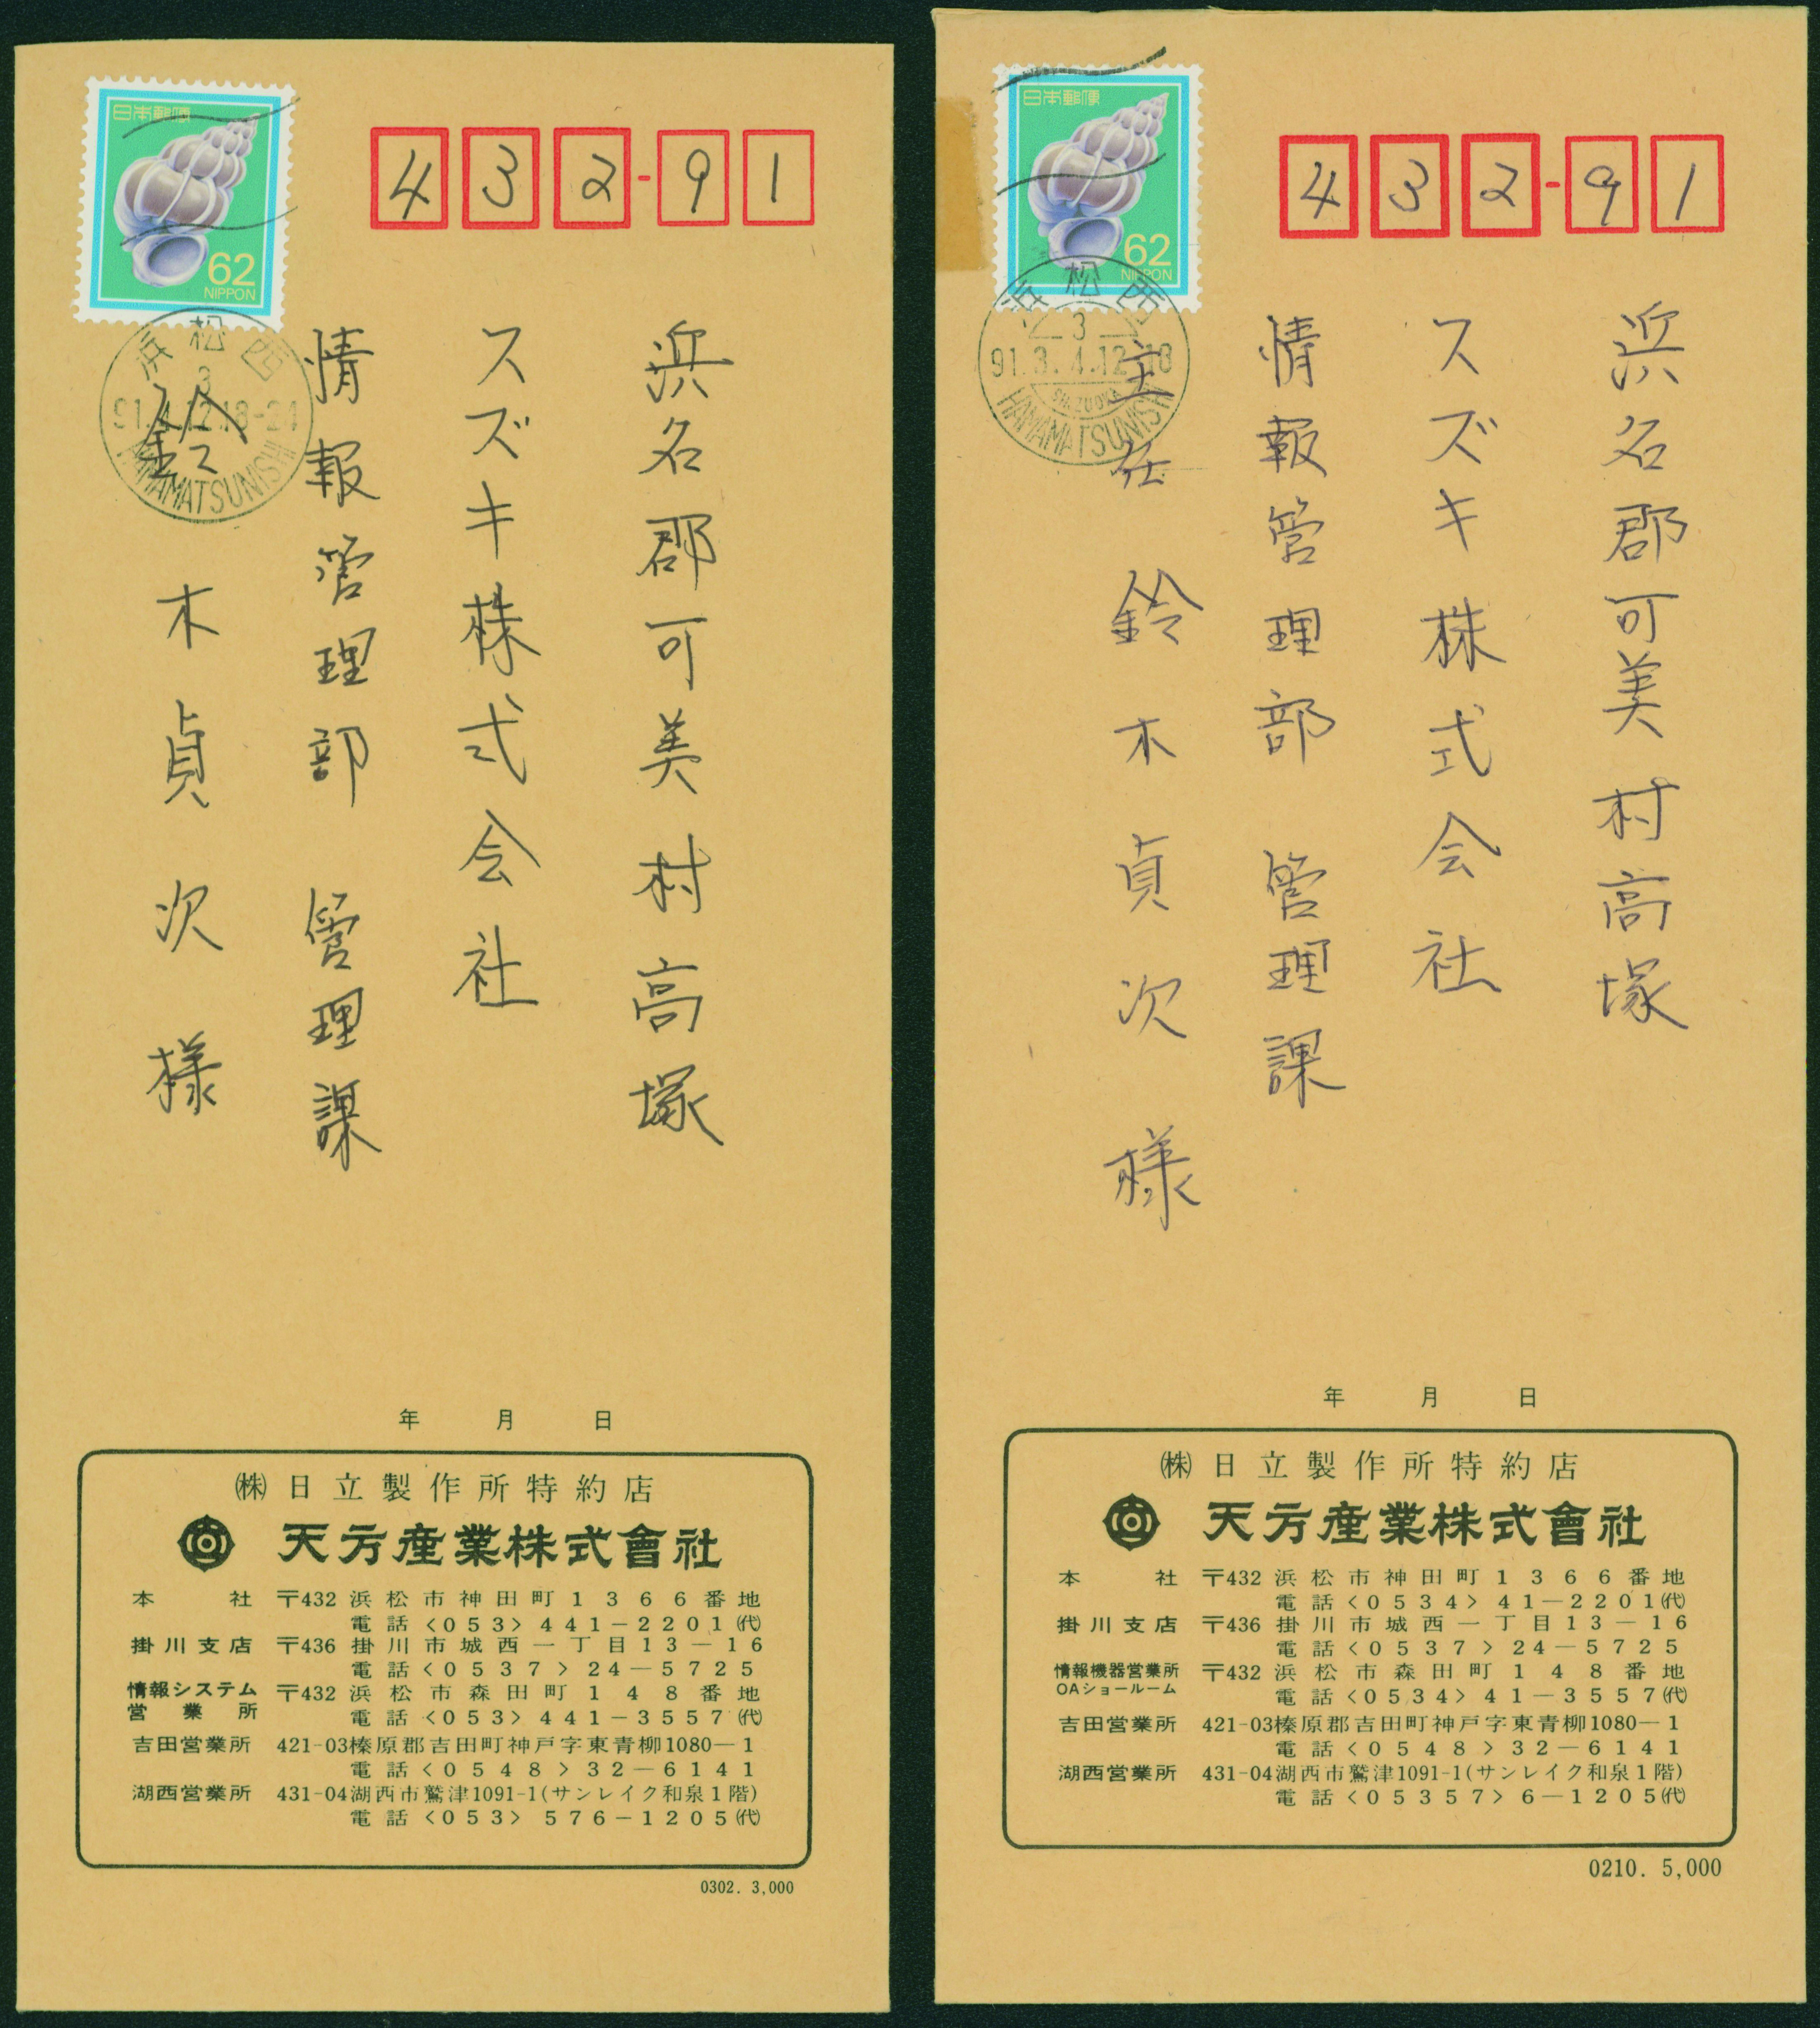 日本郵便
62
NIPPON
浜松西
3
91.4.12.18-24
HAMAMATSUNISHI
432-91
浜名郡可美村高塚
スズキ株式会社
情報管理部 管理課
鈴木貞次様
年 月 日
㈱日立製作所特約店
天方産業株式會社
本社 〒432 浜松市神田町1366番地
電話<053>441-2201(代)
掛川支店 〒436 掛川市城西一丁目13-16
電話<0537>24-5725
情報システム営業所 〒432 浜松市森田町148番地
電話<053>441-3557(代)
吉田営業所 421-03榛原郡吉田町神戸字東青柳1080-1
電話<0548>32-6141
湖西営業所 431-04湖西市鷲津1091-1(サンレイク和泉1階)
電話<053>576-1205(代)
0302. 3,000
日本郵便
62
NIPPON
浜松西
3
91.3.4.12-18
SHIZUOKA
HAMAMATSUNISHI
432-91
浜名郡可美村高塚
スズキ株式会社
情報管理部 管理課
主任 鈴木貞次様
年 月 日
㈱日立製作所特約店
天方産業株式會社
本社 〒432 浜松市神田町1366番地
電話<0534>41-2201(代)
掛川支店 〒436 掛川市城西一丁目13-16
電話<0537>24-5725
情報機器営業所 〒432 浜松市森田町148番地
OAショールーム 電話<0534>41-3557(代)
吉田営業所 421-03榛原郡吉田町神戸字東青柳1080-1
電話<0548>32-6141
湖西営業所 431-04湖西市鷲津1091-1(サンレイク和泉1階)
電話<05357>6-1205(代)
0210. 5,000